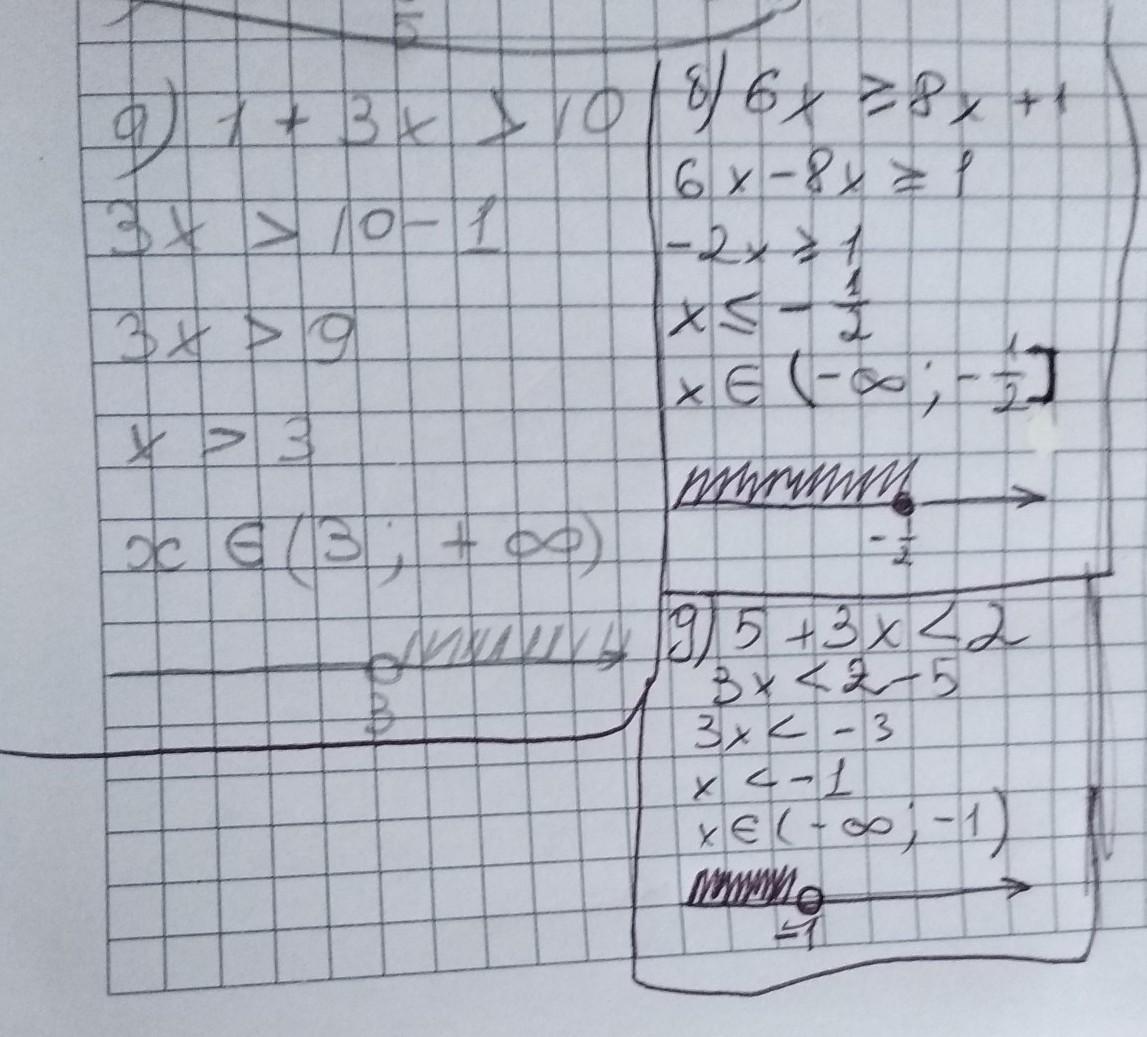 9) 1 + 3x > 10
3x > 10 - 1
3x > 9
x > 3
x ∈ (3 ; + ∞)
3
8) 6x ≥ 8x + 1
6x - 8x ≥ 1
-2x ≥ 1
x ≤ - 1/2
x ∈ (-∞ ; - 1/2]
- 1/2
9) 5 + 3x < 2
3x < 2 - 5
3x < - 3
x < - 1
x ∈ (- ∞ ; -1)
-1